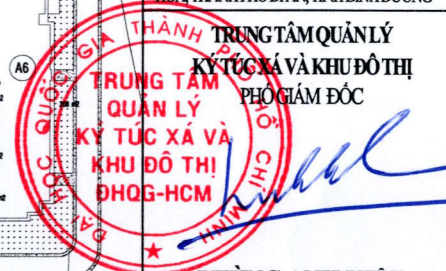 TRUNG TÂM QUẢN LÝ
KÝ TÚC XÁ VÀ KHU ĐÔ THỊ
PHÓ GIÁM ĐỐC
A6
ĐẠI HỌC QUỐC GIA THÀNH PHỐ HỒ CHÍ MINH
TRUNG TÂM
QUẢN LÝ
KÝ TÚC XÁ VÀ
KHU ĐÔ THỊ
ĐHQG-HCM